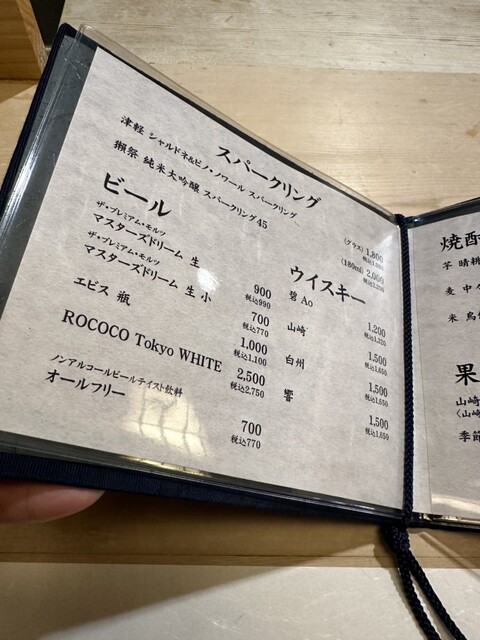 スパークリング
津軽 シャルドネ&ピノ・ノワール スパークリング (グラス) 1,800
税込1,980
獺祭 純米大吟醸 スパークリング45 (180ml) 2,000
税込2,200
ビール
ザ・プレミアム・モルツ
マスターズドリーム 生 900
税込990
ザ・プレミアム・モルツ
マスターズドリーム 生 小 700
税込770
ヱビス 瓶 1,000
税込1,100
ROCOCO Tokyo WHITE 2,500
税込2,750
ノンアルコールビールテイスト飲料
オールフリー 700
税込770
ウイスキー
碧 Ao 1,200
税込1,320
山崎 1,500
税込1,650
白州 1,500
税込1,650
響 1,500
税込1,650
焼酎
芋 晴桃
麦 中々
米 鳥
果
山崎
(山崎
季節